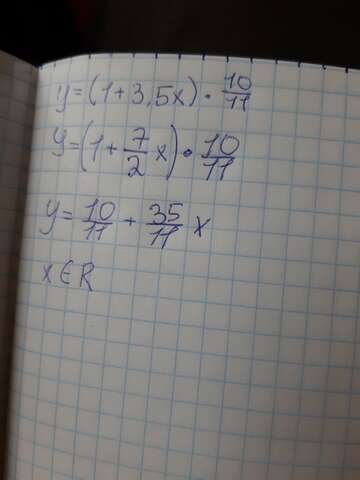 y=(1+3,5x)·10/11
y=(1+7/2x)·10/11
y=10/11+35/11x
x∈R